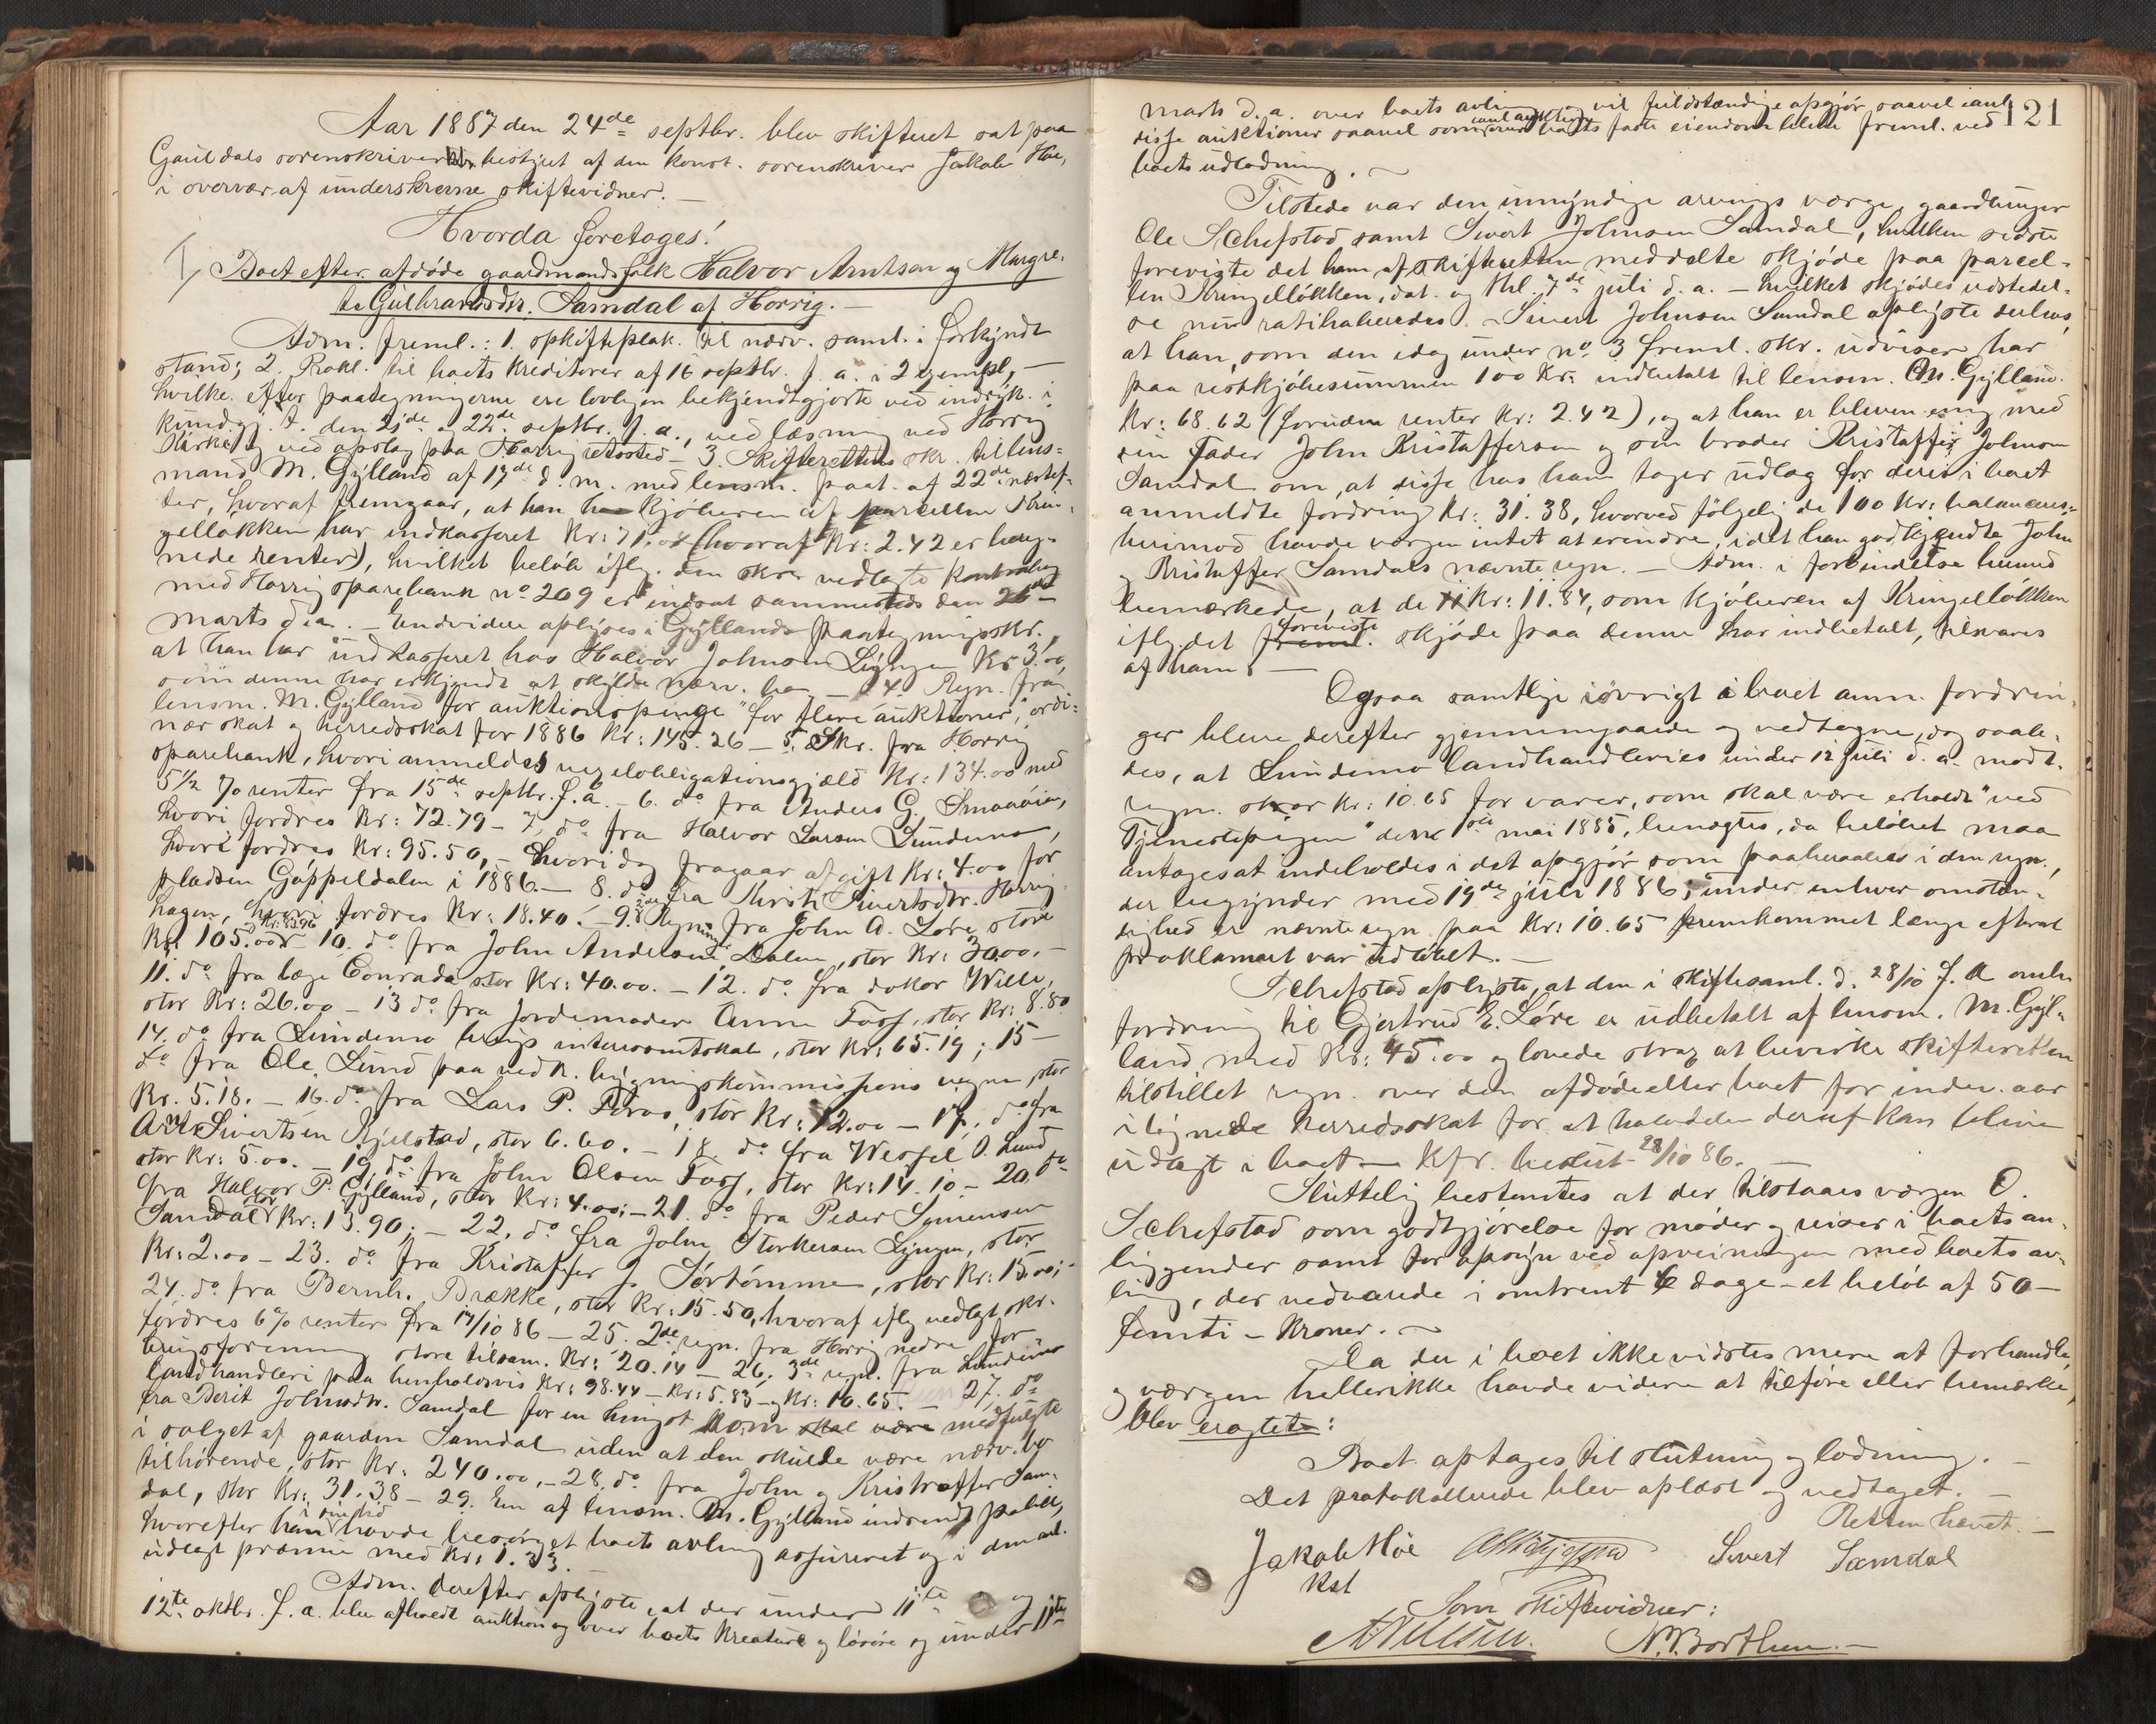 Aar 1887 den 24de septbr. blev skifteret sat paa
Gauldals sorenskriver betjent af den konst. sorenskriver Jakob Høe,
i overvær af underskrevne skiftevidner. —
Hvorda foretoges:
1, Boet efter afdøde gaardmandsfolk Halvor Arntsen og Margre-
te Gulbrandsdtr. Samdal af Horrig. —
Adm. freml.: 1. opskifteplak. til nærv. saml. i forkyndt
stand; 2. Prokl. til boets kreditorer af 16 septbr. f. a. i 2 exempl, —
hvilke efter paategningerne ere lovligen bekjendtgjorte ved indryk. i
kundgj. t. den 21de a 22de septbr. f. a., ved læsning ved Horrig
Kirke og ved opslag paa Horrig retssted — 3. Skifterettens skr. til lens-
mand M. Gylland af 17de d. m. med lensm. paat. af 22de næstef-
ter, hvoraf fremgaar, at han kjøberen af parcellen Krin-
gelløkken har indkasseret Kr: 71.04 (hvoraf Kr: 2.42 er bereg-
nede renter), hvilket beløb iflg. den skr. vedlagte kontrabog
med Horrig sparebank no 209 er indsat sammesteds den 26de
marts d. a. — Endvidere oplyses i Gyllands paategningsskr.,
at han har indkasseret hos Halvor Johnsen Lyngen Kr 3.00,
som denne har erkjendt at skylde nærv. bo — 4. Regn. fra
lensm. M. Gylland for auktionspenge "for flere auktioner", ordi-
nær skat og herredsskat for 1886 Kr: 145.26 — 5. Skr. fra Horrig
sparebank, hvori anmeldes vexelobligationsgjæld Kr: 134.00 med
5½ % renter fra 15de septbr. f. a. — 6. do fra Anders G. Smaaøien,
hvori fordres Kr: 72.79 — 7, do fra Halvor Larsen Lundemo,
hvori fordres Kr: 95.50, — hvori dog fragaar afgift Kr: 4.00 for
pladsen Gøppeldalen i 1886. — 8. do fra Kirsti Sivertsdtr. Horrig-
hagen, hvori fordres Kr: 18.40. — 9. 2de Regninger fra John A. Løre, store
Kr: 105.00 Kr: 83.96 — 10. do fra John Andersen Dalen, stor Kr: 30.00. —
11. do fra læge Conradi stor Kr: 40.00. — 12. do fra doktor Wille,
stor Kr: 26.00 — 13 do fra Jordemoder Anne Foss, stor Kr: 8.80
14. do fra Lundemo brugs interessentskab, stor Kr: 65.19; 15 —
do fra Ole Lund paa vedk. bygningskommissions vegne, stor
Kr. 5.18. — 16. do fra Lars P. Foros, stor Kr: 12.00 — 17. do fra
Arnt Sivertsen Kjelstad, stor 6.60. — 18. do fra Wessel O. Lund
stor Kr: 5.00. — 19, do fra John Olsen Foss, stor Kr: 14.10 — 20. do
fra Halvor P. Gylland, stor Kr: 4.00; — 21. do fra Peder Simensen
Samdal stor Kr: 13.90; — 22. do fra John Storkersen Lyngen, stor
Kr: 2.00 — 23. do fra Kristoffer J. Sørtømme, stor Kr: 15.00; —
24. do fra Bernh. Brække, stor Kr: 15.50, hvoraf iflg. vedlagt skr.
fordres 6 % renter fra 14/10 86 — 25. 2de regn. fra Horrig nedre for-
brugsforening store tilsam. Kr: 20.14 — 26. 3de regn. fra Lundemo
landhandleri paa henholdsvis Kr: 98.44 — Kr: 5.83 — og Kr: 10.65. — 27. do
fra Berit Johnsdtr. Samdal for en hingst som skal være medfulgt
i salget af gaarden Samdal uden at den skulde være nærv. bo
tilhørende, stor Kr: 240.00. — 28. do fra John og Kristoffer Sam-
dal, stor Kr: 31.38 — 29. En af lensm. M. Gylland indsendt police,
hvorefter han i sin tid havde besørget boets avling assureret og i den anl.
udlagt præmie med Kr: 1.33.
Adm. derefter oplyste, at der under 11te og
12te oktbr. f. a. blev afholdt auktion over boets kreature og løsøre og under 11te
121
marts d. a. over boets avling, og vil fuldstændige opgjør saavel anl.
disse auktioner saavel som anl. auktion over boets faste eiendom blive freml. ved
boets udlodning. —
Tilstede var den umyndige arvings værge, gaardbruger
Ole Schefstad, samt Sivert Johnsen Samdal, hvilken sidste
foreviste det ham af skifteretten meddelte skjøde paa parcel-
len Kringelløkken, dat. og thl. 7de juli d. a. — hvilket skjødes udstedel-
se nu ratihaberedes. — Sivert Johnsen Samdal oplyste derhos,
at han, som den idag under no 3 freml. skr. udviser, har
paa restkjøbesummen 100 Kr: indbetalt til lensm. M. Gylland.
Kr: 68.62 (foruden renter Kr: 2.42), og at han er bleven enig med
sin Fader John Kristoffersen og sin broder Kristoffer Johnsen
Samdal om, at disse hos ham tager udlag for deres i boet
anmeldte fordring Kr: 31.38, hvorved følgelig de 100 Kr: balanceres;
herimod havde værgen intet at erindre, idet han godkjendte John
og Kristoffer Samdals nævnte regn. — Adm. i forbindelse hermed
bemærkede, at de Kr: 11.84, som kjøberen af Kringelløkken
iflg. det foreviste skjøde paa denne har indbetalt, tilsvares
af ham. —
Ogsaa samtlige iøvrigt i boet anm. fordrin-
ger bleve derefter gjennemgaaede og vedtagne, dog saale-
des, at Lundemo landhandleries under 12 juli d. a. modt.
regn. stor Kr: 10.65 for varer, som skal være erholdt "ved
Tjenestepigen" den 1ste mai 1885, benægtes, da beløbet maa
antages at indeholdes i det opgjør som paaberaabes i den regn.,
der begynder med 19de juli 1886; under enhver omstæn-
dighed er nævnte regn. paa Kr: 10.65 fremkommet længe efterat
proklamaet var udløbet. —
Schefstad oplyste, at den i skiftesaml. d. 28/10 f. a. omh.
fordring til Gjertrud E. Løre er udbetalt af lensm. M. Gyl-
land med Kr: 45.00 og lovede strax at bevirke skifteretten
tilstillet regn. over den afdøde eller boet for indev. aar
ilignede herredsskat for at halvdelen deraf kan blive
udlagt i boet — Kfr. beslut. 28/10 86. —
Sluttelig bestemtes at der tilstaaes værgen O.
Schefstad som godtgjørelse for møder og reiser i boets an-
liggender samt for opsyn ved opveiningen med boets av-
ling, der vedvarede i omtrent 6 dage — et beløb af 50 —
femti — Kroner. —
Da der i boet ikke vidstes mere at forhandle,
og værgen hellerikke havde videre at tilføre eller bemærke,
blev eragtet:
Boet optages til slutning og lodning. —
Det protokollerede blev oplæst og vedtaget. —
Retten hævet. —
Jakob Høe
Kst
Sivert Samdal
Som skiftevidner:
A Nilsen. N. Borthen. —